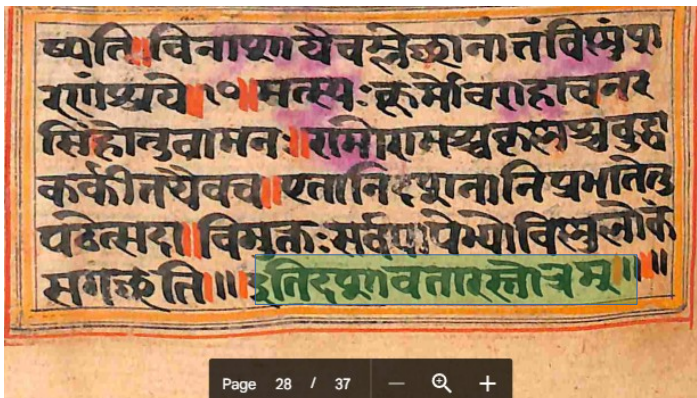 ष्यति॥विनाशायैवम्लेछानांत्तंविष्णुंशा
रणंव्रये॥१०॥मत्स्यःकूर्मोवराहाचनर
सिंहोतुवामनः॥रामोरामश्चकृष्णश्चवुद्ध
कर्कीतथैवच॥एतानिदशनानिप्रभातेतु
पठेत्सदा॥विमुक्तःसर्वपापेभ्योविष्णुलोकं
सगछति॥॥इतिदशावतारस्तोत्रम्॥॥
Page 28 / 37